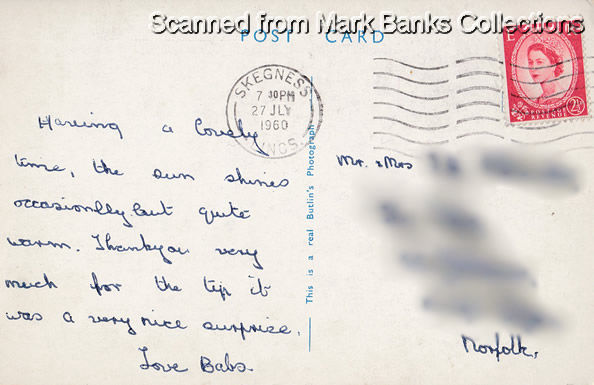 Scanned from Mark Banks Collections
POST CARD
SKEGNESS
7 30PM
27 JLY
1960
LINCS.
2½
POSTAGE
REVENUE
Having a lovely
time, the sun shines
occasionlly but quite
warm. Thankyou very
much for the tip it
was a very nice surprize.
Love Babs.
This is a real Butlin's Photograph
Mr. & Mrs
Norfolk,